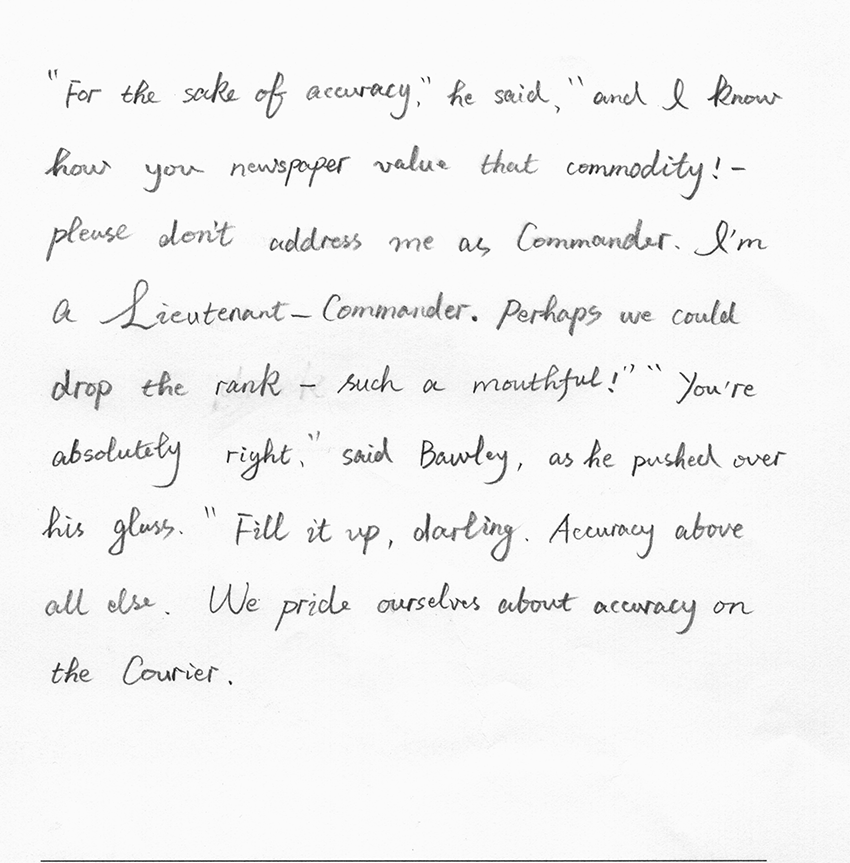 "For the sake of accuracy," he said, "and I know
how you newspaper value that commodity! -
please don't address me as Commander. I'm
a Lieutenant-Commander. Perhaps we could
drop the rank - such a mouthful!" "You're
absolutely right," said Bawley, as he pushed over
his glass. "Fill it up, darling. Accuracy above
all else. We pride ourselves about accuracy on
the Courier.